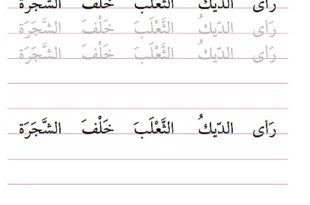 رَأى الدّيكُ الثَّعْلَبَ خَلْفَ الشَّجَرَة
رَأى الدّيكُ الثَّعْلَبَ خَلْفَ الشَّجَرَة
رَأى الدّيكُ الثَّعْلَبَ خَلْفَ الشَّجَرَة
رَأى الدّيكُ الثَّعْلَبَ خَلْفَ الشَّجَرَة